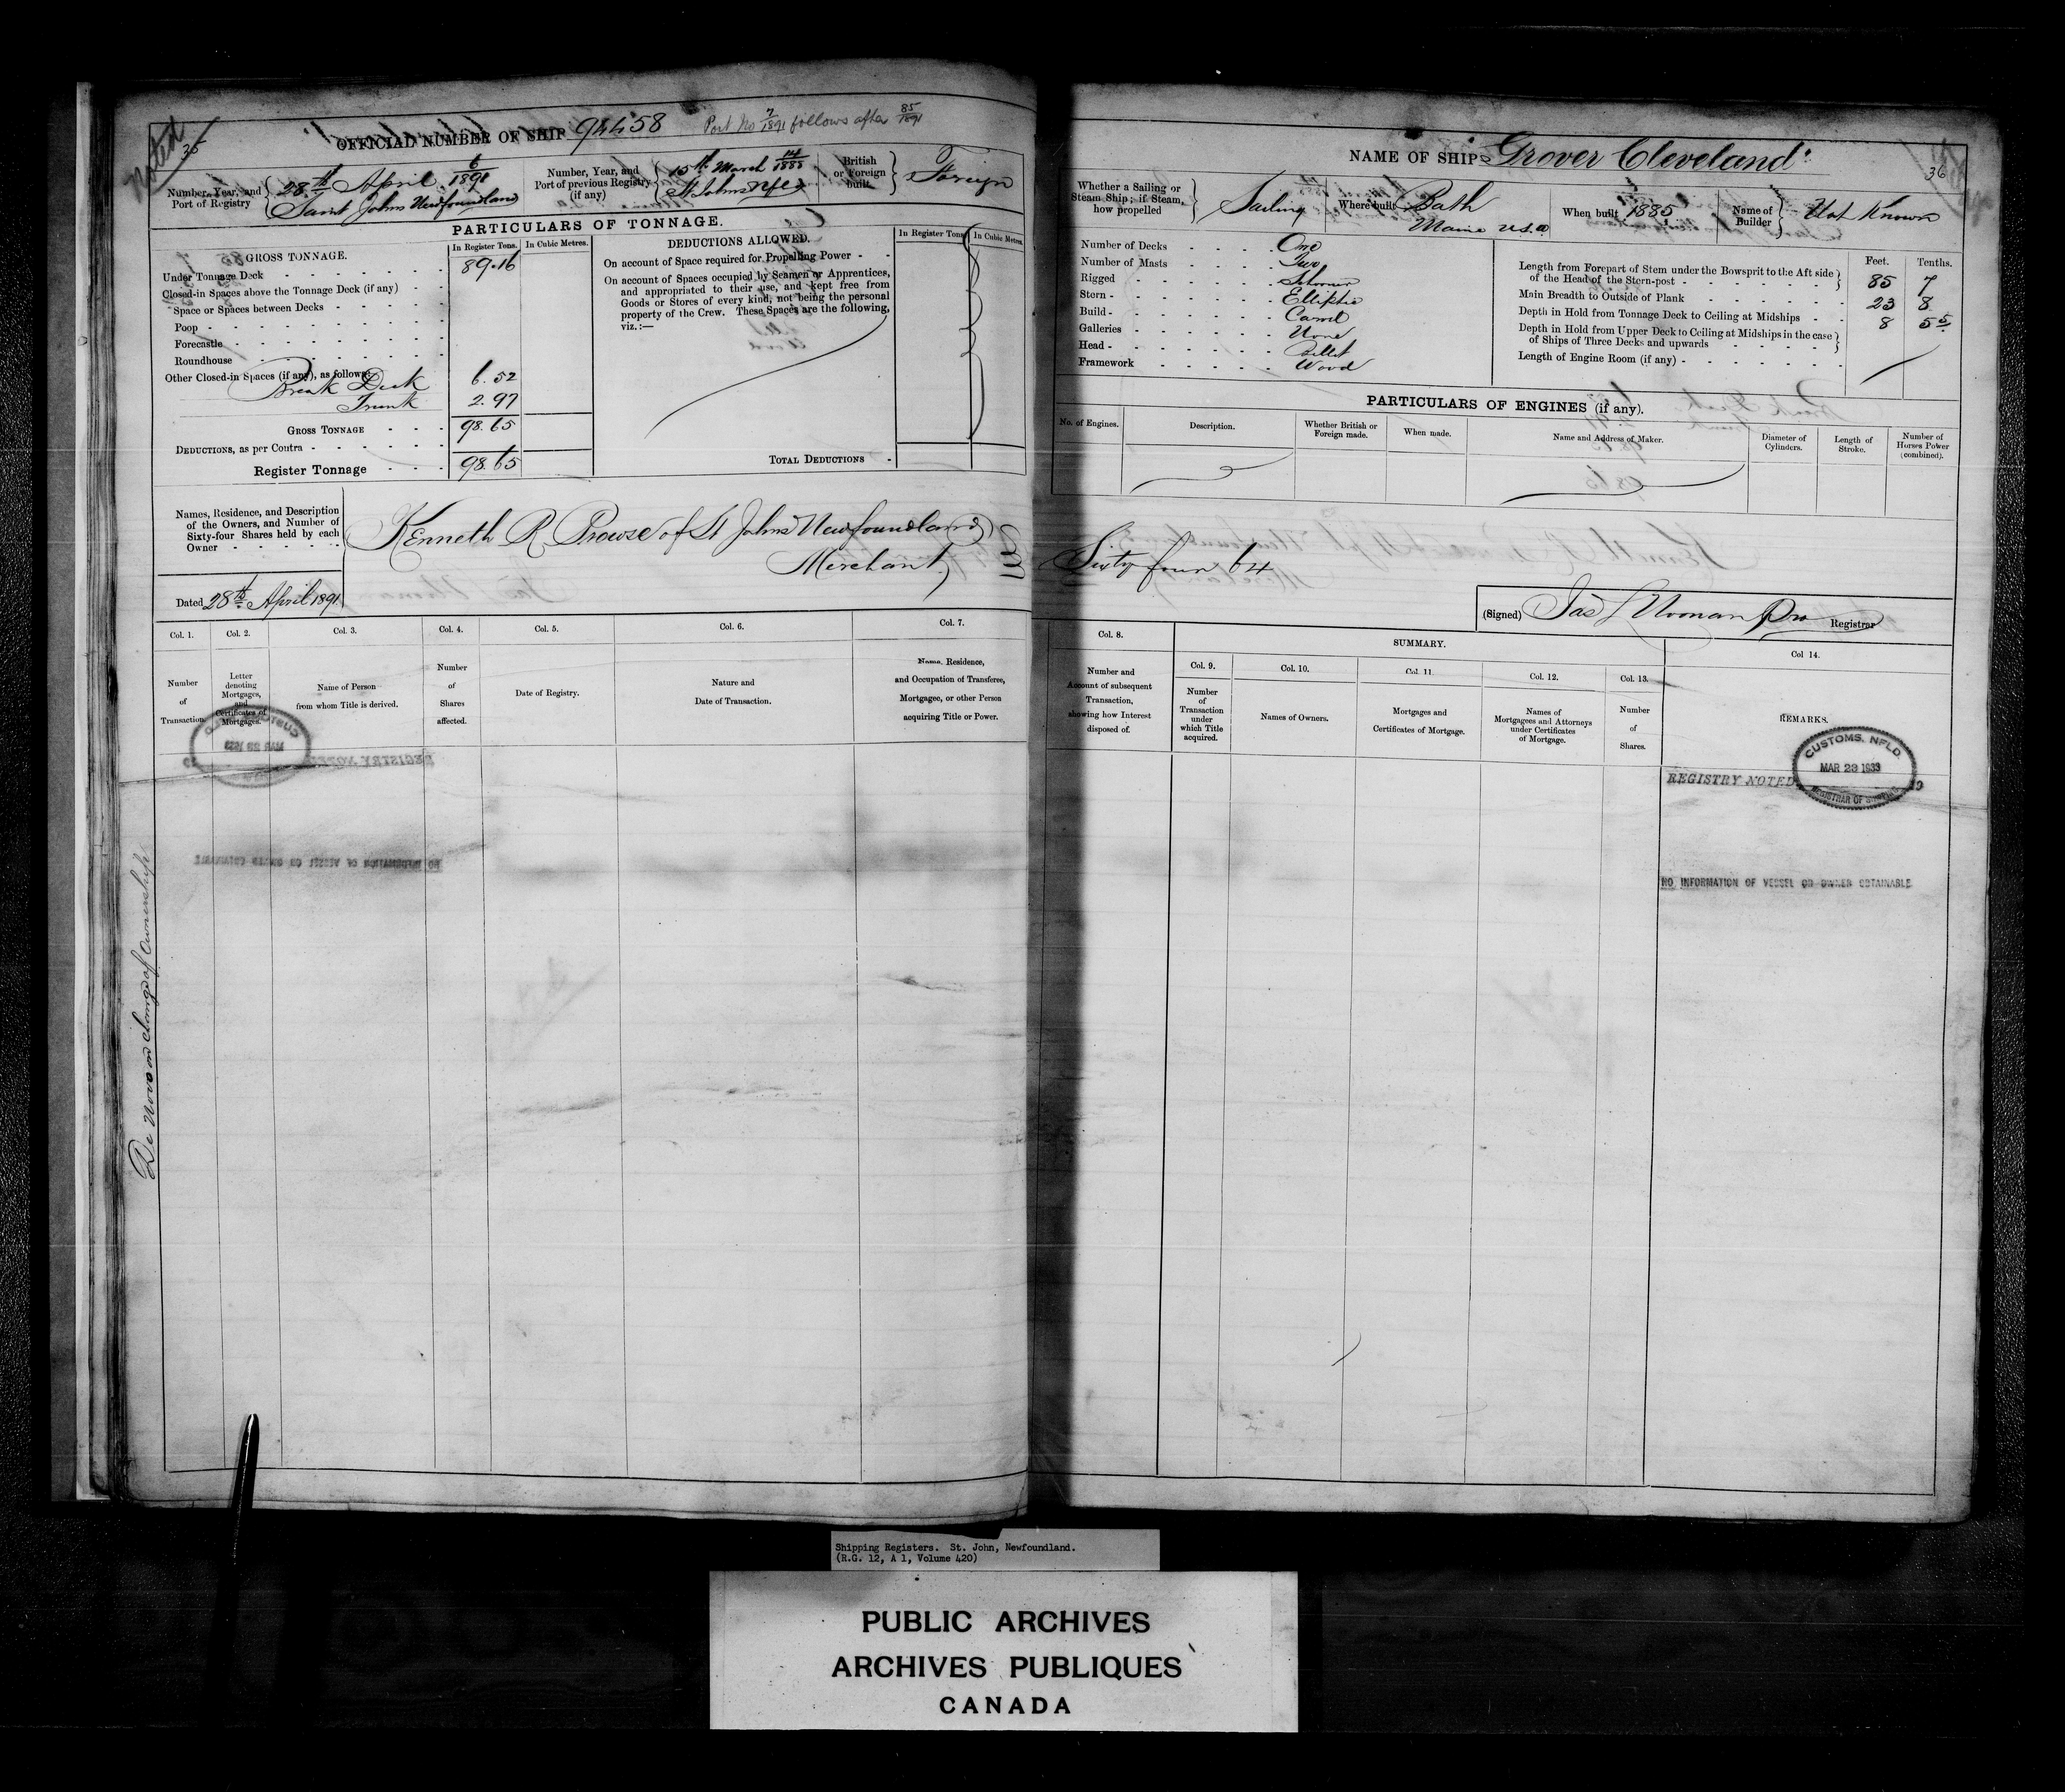 Noted
35
OFFICIAL NUMBER OF SHIP 94458 Port No 7/1891 follows after 85/1891
Number, Year, and Port of Registry { 28th April 6/1891
Saint Johns Newfoundland
Number, Year, and Port of previous Registry (if any) { 15th March 14/1888
St Johns Nfld
British or Foreign built } Foreign
PARTICULARS OF TONNAGE.
GROSS TONNAGE. In Register Tons. In Cubic Metres.
Under Tonnage Deck 89.16
Closed-in Spaces above the Tonnage Deck (if any)
Space or Spaces between Decks
Poop
Forecastle
Roundhouse
Other Closed-in Spaces (if any), as follows:
Break Deck 6.52
Trunk 2.97
GROSS TONNAGE 98.65
DEDUCTIONS, as per Contra
Register Tonnage 98.65
DEDUCTIONS ALLOWED. In Register Tons. In Cubic Metres.
On account of Space required for Propelling Power
On account of Spaces occupied by Seamen or Apprentices,
and appropriated to their use, and kept free from
Goods or Stores of every kind, not being the personal
property of the Crew. These Spaces are the following,
viz.:—
TOTAL DEDUCTIONS
Names, Residence, and Description
of the Owners, and Number of
Sixty-four Shares held by each
Owner
Kenneth R Prowse of St Johns Newfoundland
Merchant
Dated 28th April 1891
Col. 1. Col. 2. Col. 3. Col. 4. Col. 5. Col. 6. Col. 7.
Number of Transaction.
Letter denoting Mortgages, and Certificates of Mortgages.
Name of Person from whom Title is derived.
Number of Shares affected.
Date of Registry.
Nature and Date of Transaction.
Name, Residence, and Occupation of Transferee, Mortgagee, or other Person acquiring Title or Power.
De Novo on change of Ownership
NAME OF SHIP Grover Cleveland
36
Whether a Sailing or Steam Ship; if Steam, how propelled } Sailing
Where built Bath
Maine U.S.A
When built 1885
Name of Builder } Not Known
Number of Decks One
Number of Masts Two
Rigged Schooner
Stern Elliptic
Build Carvel
Galleries None
Head Billet
Framework Wood
Feet. Tenths.
Length from Forepart of Stem under the Bowsprit to the Aft side
of the Head of the Stern-post 85 7
Main Breadth to Outside of Plank 23 8
Depth in Hold from Tonnage Deck to Ceiling at Midships 8 55
Depth in Hold from Upper Deck to Ceiling at Midships in the case
of Ships of Three Decks and upwards
Length of Engine Room (if any)
PARTICULARS OF ENGINES (if any).
No. of Engines. Description. Whether British or Foreign made. When made. Name and Address of Maker. Diameter of Cylinders. Length of Stroke. Number of Horses Power (combined).
Sixty four 64
(Signed) Jas L Noonan Pro Registrar
Col. 8. SUMMARY.
Col. 9. Col. 10. Col. 11. Col. 12. Col. 13. Col 14.
Number and Account of subsequent Transaction, showing how Interest disposed of.
Number of Transaction under which Title acquired.
Names of Owners.
Mortgages and Certificates of Mortgage.
Names of Mortgagees and Attorneys under Certificates of Mortgage.
Number of Shares.
REMARKS.
REGISTRY NOTED
CUSTOMS, NFLD
MAR 23 1933
REGISTRAR OF SHIPPING
NO INFORMATION OF VESSEL OR OWNER OBTAINABLE
Shipping Registers. St. John, Newfoundland.
(R.G. 12, A 1, Volume 420)
PUBLIC ARCHIVES
ARCHIVES PUBLIQUES
CANADA